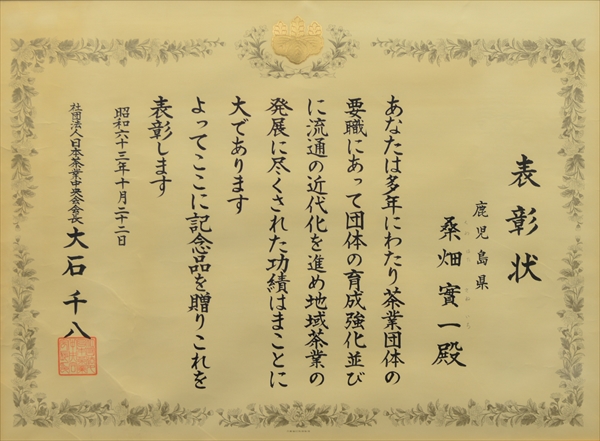 表彰状
鹿児島県
桑畑實一殿
あなたは多年にわたり茶業団体の
要職にあって団体の育成強化並び
に流通の近代化を進め地域茶業の
発展に尽くされた功績はまことに
大であります
よってここに記念品を贈りこれを
表彰します
昭和六十三年十月二十二日
社団法人日本茶業中央会会長 大石千八